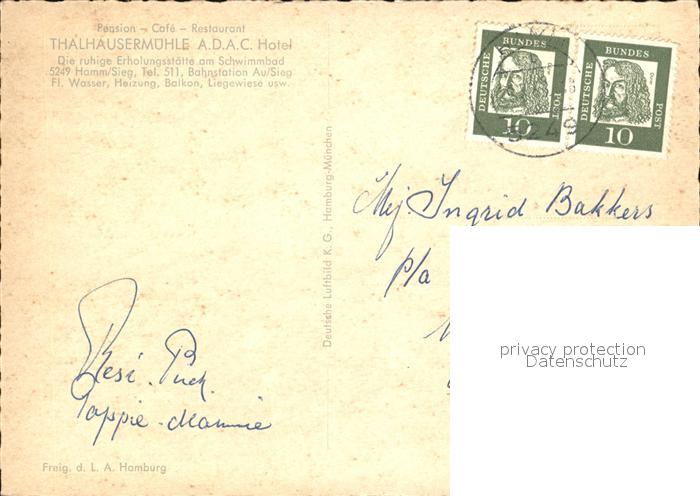 Pension – Café – Restaurant
THALHAUSERMÜHLE A.D.A.C. Hotel
Die ruhige Erholungsstätte am Schwimmbad
5249 Hamm/Sieg, Tel. 511, Bahnstation Au/Sieg
Fl. Wasser, Heizung, Balkon, Liegewiese usw.
DEUTSCHE BUNDES POST
10
DEUTSCHE BUNDES POST
10
524
Deutsche Luftbild K. G., Hamburg-München
Mej. Ingrid Bakkers
p/a
privacy protection
Datenschutz
Resi. Puck.
Pappie - Mammie
Freig. d. L. A. Hamburg